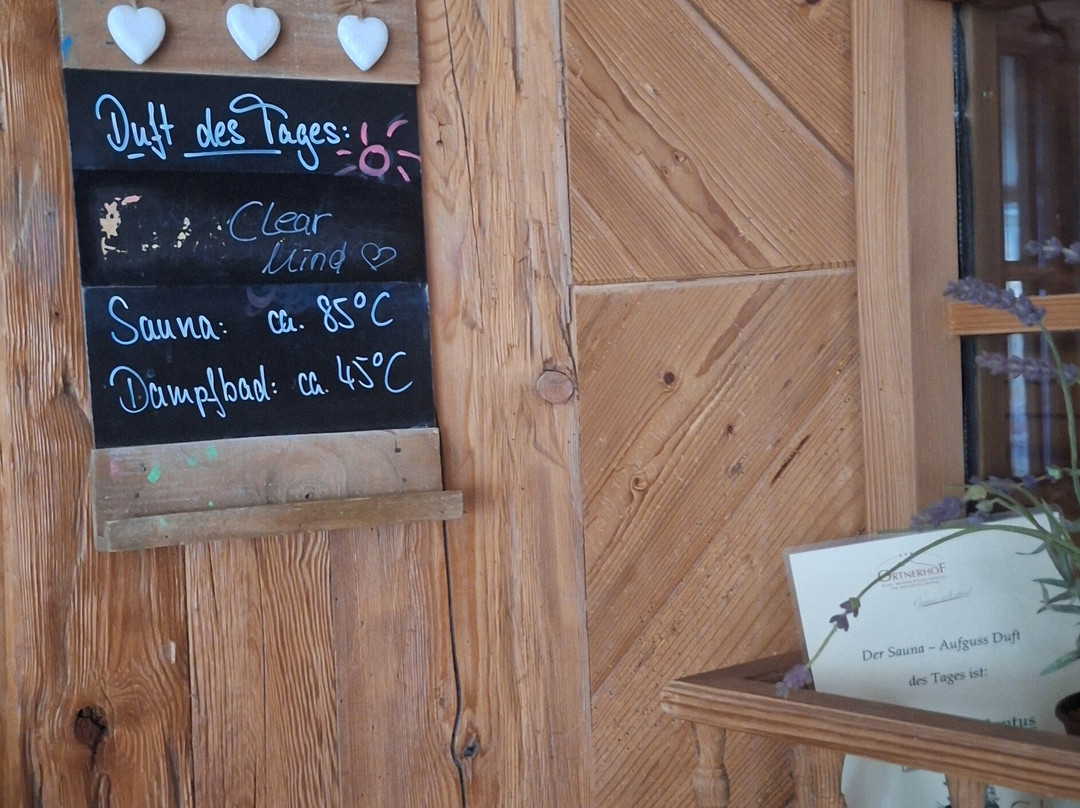 Duft des Tages:
Clear
Mind
Sauna: ca. 85°C
Dampfbad: ca. 45°C
ORTNERHOF
Der Sauna – Aufguss Duft
des Tages ist: